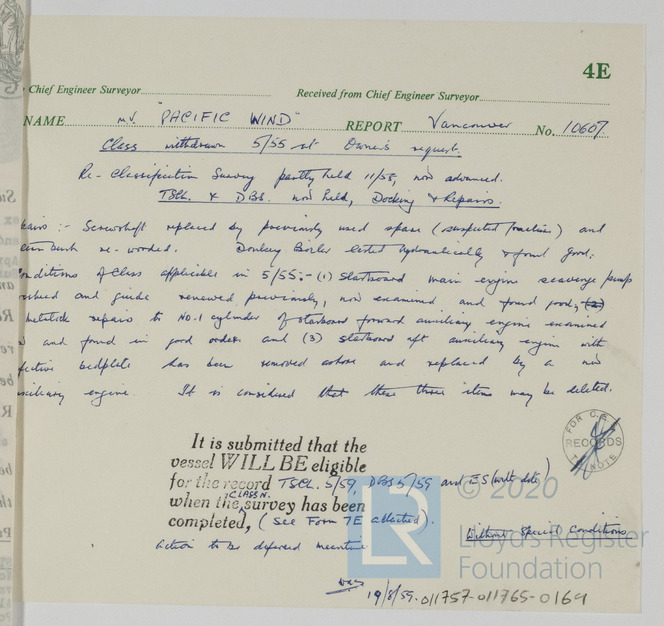 4E
Chief Engineer Surveyor
Received from Chief Engineer Surveyor
NAME m.v. "PACIFIC WIND" REPORT Vancouver No. 10607
Class withdrawn 5/55 at Owner's request.
Re-Classification Survey partly held 11/58, now advanced.
TSCL. & DBS. now held, Docking & Repairs.
:- Screwshaft replaced by previously used spare (suspected fracture) and
bush re-wooded. Donkey Boiler tested hydraulically & found good.
of Class applicable in 5/55:- (1) Starboard main engine scavenge pump
and guide renewed previously, now examined and found good, (2)
repairs to No.1 cylinder of starboard forward auxiliary engine examined
and found in good order and (3) starboard aft auxiliary engine with
bedplate has been removed ashore and replaced by a new
engine. It is considered that these three items may be deleted.
It is submitted that the
vessel WILL BE eligible
for the record TSCL. 5/59, DBS 5/59 and ES (with date)
when the CLASSN. survey has been
completed, (See Form 7E attached).
Without Special Conditions
Action to be deferred meantime
FOR C.R.
RECORDS
TO NOTE
19/8/59
011757-011765-0169
© 2020
LR
Lloyd's Register
Foundation